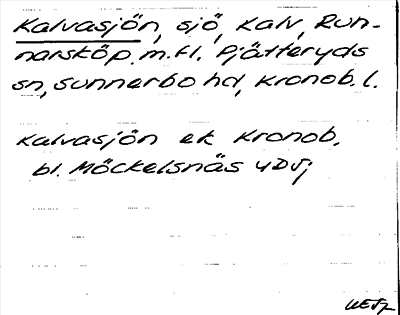 Kalvasjön, sjö, Kalv, Run-
narsköp m.fl. Pjätteryds
sn, Sunnerbo hd, Kronob. l.
Kalvasjön ek Kronob.
bl. Möckelsnäs 4D5j